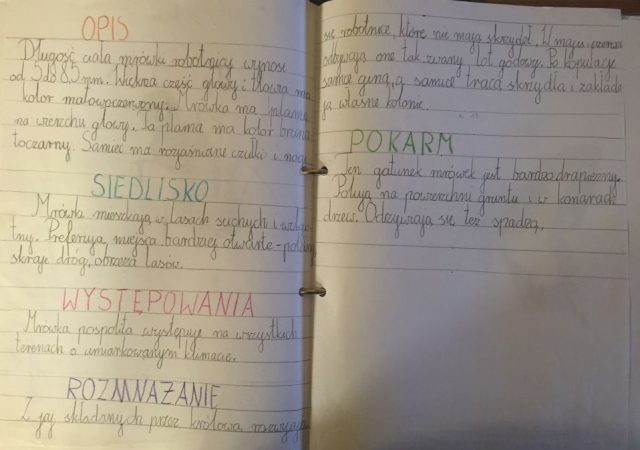 OPIS
Długość ciała mrówki robotnicy wynosi
od 5 do 8,5 mm. Większa część głowy i tłowia ma
kolor matowoczerwony. Mrówka ma plamę
na wierzchu głowy. Ta plama ma kolor bruna
toczarny. Samiec ma rozjaśnione czułki i nogi.
SIEDLISKO
Mrówki mieszkają w lasach suchych i wilgo
tny. Preferują miejsca bardziej otwarte - polany,
skraje dróg, obrzeża lasów.
WYSTĘPOWANIA
Mrówka pospolita występuje na wszystkich
terenach o umiarkowanym klimacie.
ROZMNAŻANIE
Z jaj składanych przez królową rozwijają
się robotnice, które nie mają skrzydeł. W maju i czerwcu
odbywają one tak zwany lot godowy. Po kopulacji
samce giną, a samice tracą skrzydła i zakłada
ją własne kolonie.
POKARM
Ten gatunek mrówek jest bardzo drapieżny.
Polują na powierzchni gruntu i w konarach
drzew. Odżywiają się też spadzią.